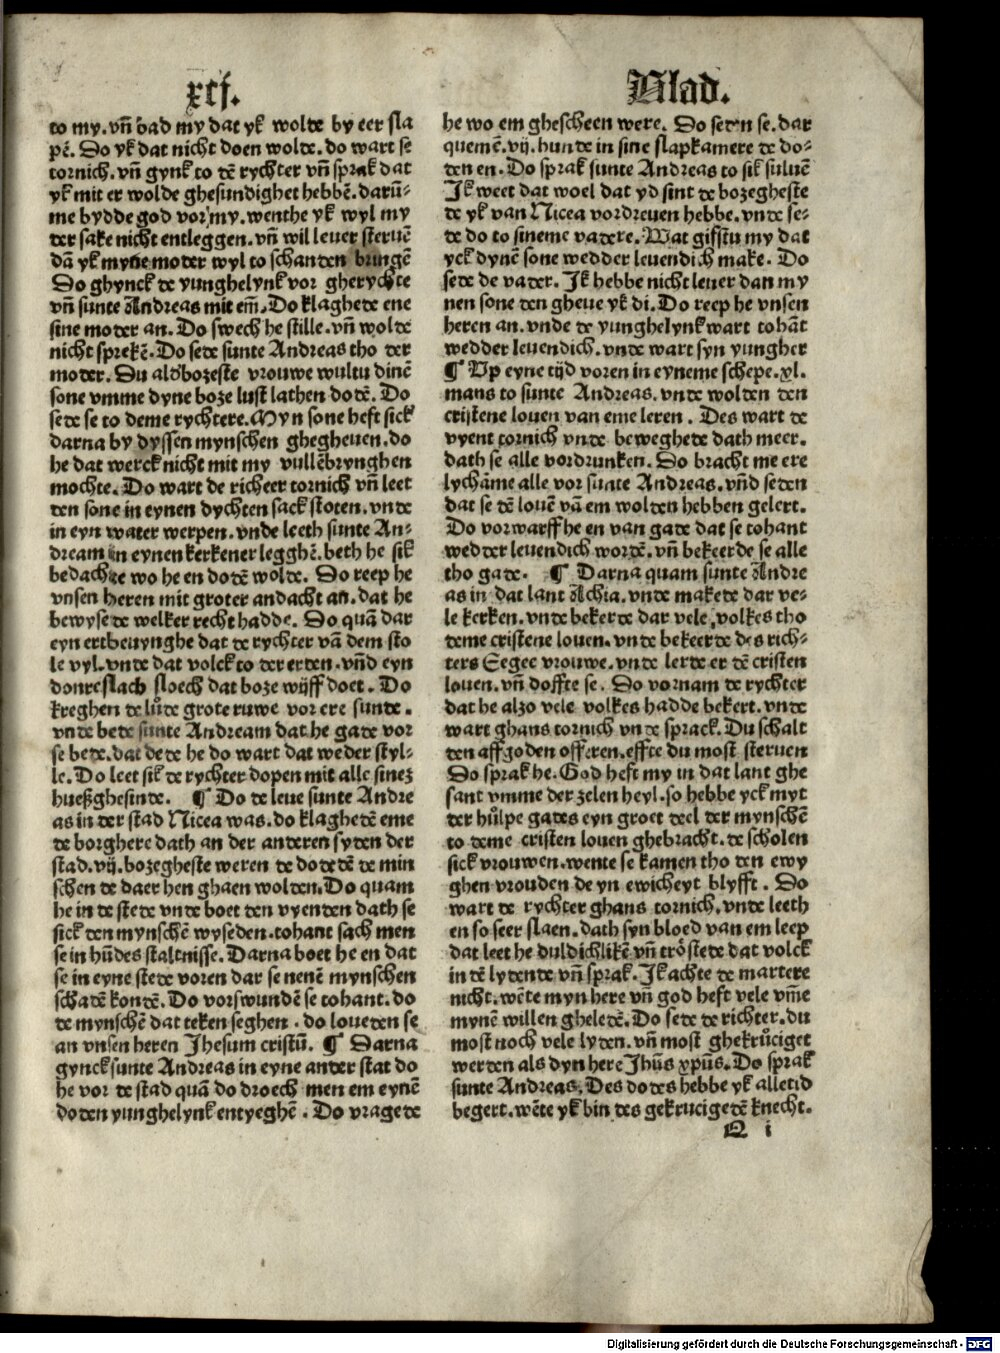 xcj.
Blad.
to my. vñ bad my dat yk wolde by eer sla
pẽ. Do yk dat nicht doen wolde. do wart se
tornich. vñ gynk to dẽ rychter vñ sprak dat
yk mit er wolde ghesundighet hebbẽ. darũ-
me bydde god vor my. wenthe yk wyl my
der sake nicht entleggen. vñ wil leuer steruẽ
dã yk myne moder wyl to schanden bringẽ
Do ghynck de yunghelynk vor gherychte
vñ sunte Andreas mit em̃. Do klaghede ene
sine moder an. Do swech he stille. vñ wolde
nicht sprekẽ. Do sede sunte Andreas tho der
moder. Du alđbozeste vrouwe wultu dinẽ
sone vmme dyne boze lust lathen dodẽ. Do
sede se to deme rychtere. Myn sone heft sick
darna by dyssen mynschen ghegheuen. do
he dat werck nicht mit my vullẽbrynghen
mochte. Do wart de richeer tornich vñ leet
den sone in eynen dychten sack stoten. vnde
in eyn water werpen. vnde leeth sunte An-
dream in eynen kerkener legghẽ. beth he sik
bedachte wo he en dodẽ wolde. Do reep he
vnsen heren mit groter andacht an. dat he
bewysede welker recht hadde. Do quã dar
eyn ertbeuynghe dat de rychter vã dem sto
le vyl. vnde dat volck to der erden. vñd eyn
donreslach sloech dat boze wijff doet. Do
kreghen de lude grote ruwe vor ere sunde.
vnde bede sunte Andream dat he gade vor
se bede. dat dede he do wart dat weder styl-
le. Do leet sik de rychter dopen mit alle sinez
hueßghesinde. ¶ Do de leue sunte Andre
as in der stad Nicea was. do klagheden̄ eme
de borghere dath an der anderen syden der
stad. vij. bozegheste weren de dodedẽ de min
schen de daer hen ghaen wolden. Do quam
he in de stede vnde boet den vyenden dath se
sick den mynschẽ wyseden. tohant sach men
se in hũdes staltnisse. Darna boet he en dat
se in eyne stede voren dar se nenẽ mynschen
schadẽ kondẽ. Do vorswundẽ se tohant. do
de mynschẽ dat teken seghen. do loueden se
an vnsen heren Jhesum cristũ. ¶ Darna
gynck sunte Andreas in eyne ander stat do
he vor de stad quã do droech men em eynẽ
doden yunghelynk entyeghẽ. Do vragede
he wo em ghescheen were. Do seden se. dar
quemẽ. vij. hunde in sine slapkamere de do-
den en. Do sprak sunte Andreas to sik suluẽ
Jk weet dat woel dat yd sint de bozegheste
de yk van Nicea vordreuen hebbe. vnde se-
de do to sineme vadere. Wat gifstu my dat
yck dynẽ sone wedder leuendich make. Do
sede de vader. Jk hebbe nicht leuer dan my
nen sone den gheue yk di. Do reep he vnsen
heren an. vnde de yunghelynk wart tohãt
wedder leuendich. vnde wart syn yungher
¶ Vp eyne tijd voren in eyneme schepe. xl.
mans to sunte Andreas. vnde wolden den
cristene louen van eme leren. Des wart de
vyent tornich vnde beweghede dath meer.
dath se alle vordrunken. Do bracht me ere
lychãme alle vor sunte Andreas. vñd seden
dat se dẽ louẽ vã em wolden hebben gelert.
Do vorwarff he en van gade dat se tohant
wedder leuendich wordẽ. vñ bekeerde se alle
tho gade. ¶ Darna quam sunte Andre
as in dat lant Achia. vnde makede dar ve-
le kerken. vnde bekerde dar vele volkes tho
deme cristene louen. vnde bekeerde des rich-
ters Egee vrouwe. vnde lerde er dẽ cristen
louen. vñ doffte se. Do vornam de rychter
dat he alzo vele volkes hadde bekert. vnde
wart ghans tornich vnde sprack. Du schalt
den affgoden offeren. effte du most steruen
Do sprak he. God heft my in dat lant ghe
sant vmme der zelen heyl. so hebbe yck myt
der hulpe gades eyn groet deel der mynschẽ
to deme cristen louen ghebracht. de scholen
sick vrouwen. wente se kamen tho den ewy
ghen vrouden de yn ewicheyt blyfft. Do
wart de rychter ghans tornich. vnde leeth
en so seer slaen. dath syn bloed van em leep
dat leet he duldichlikẽ vñ tröstede dat volck
in dẽ lydende vñ sprak. Jk achte de martere
nicht. wẽte myn here vñ god heft vele vm̃e
mynẽ willen gheledẽ. Do sede de richter. du
most noch vele lyden. vñ most ghekrůciget
werden als dyn here Jhũs xp̃us. Do sprak
sunte Andreas. Des dodes hebbe yk alletid
begert. wẽte yk bin des gekrucigedẽ knecht.
Q i
Digitalisierung gefördert durch die Deutsche Forschungsgemeinschaft - DFG